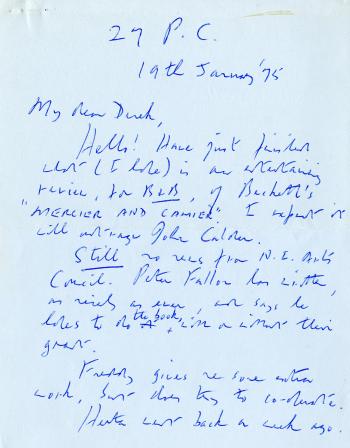 29 P. C.
19th January '75
My dear Derek,
Hello! Have just finished
what (I hope) is an entertaining
review, for B&B, of Beckett's
"MERCIER AND CAMIER". I expect it
will outrage John Calder.
Still no news from N.I. Arts
Council. Peter Fallon has written,
as nicely as ever, and says he
hopes to do the book, with or without their
grant.
Freddy gives me some extra
work, but does try to co-operate.
went back a week ago.